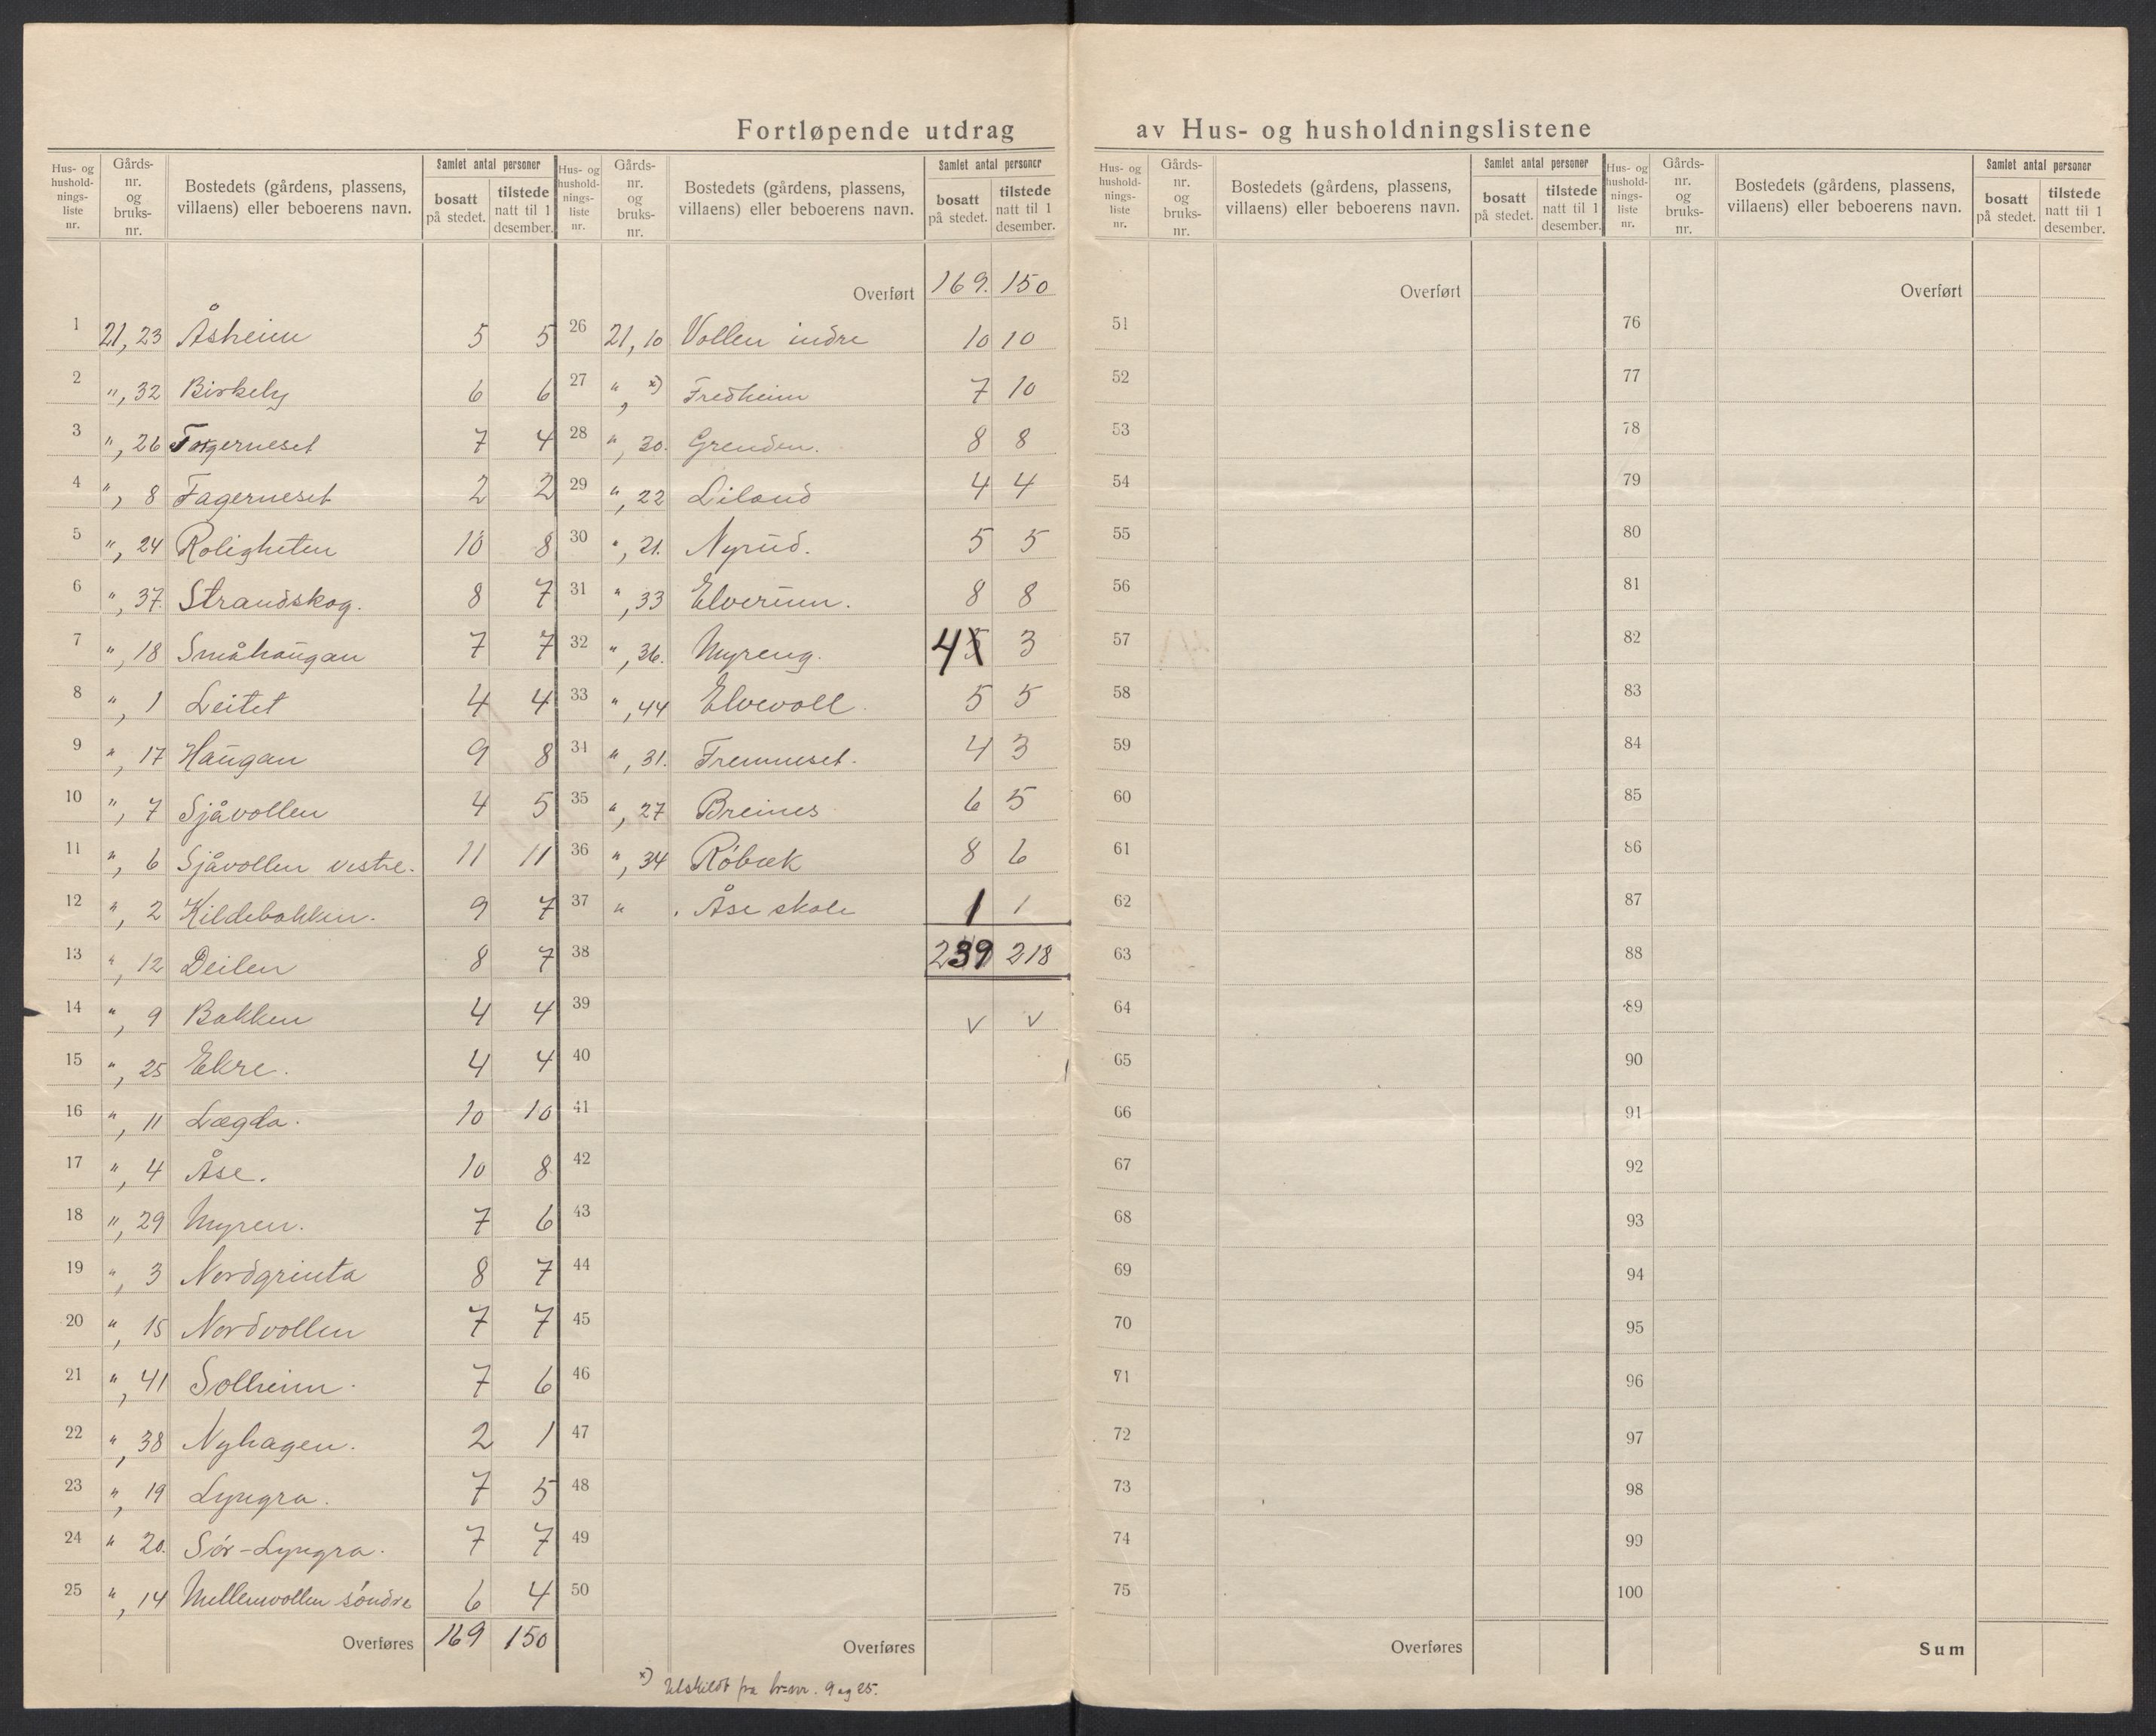 Fortløpende utdrag av Hus- og husholdningslistene
Hus- og husholdningsliste nr. | Gårds-nr. og bruks-nr. | Bostedets (gårdens, plassens, villaens) eller beboerens navn. | Samlet antal personer bosatt på stedet. | tilstede natt til 1 desember.
1 21,23 Åsheim 5 5
2 ", 32 Birkely 6 6
3 ", 26 Fagerneset 7 4
4 ", 8 Fagerneset 2 2
5 ", 24 Roligheten 10 8
6 ", 37. Strandskog. 8 7
7 ", 18 Småhaugan 7 7
8 ", 1 Leitet 4 4
9 ", 17 Haugan 9 8
10 ", 7 Sjåvollen 4 5
11 ", 6 Sjåvollen vestre. 11 11
12 ", 2 Kildebakken. 9 7
13 ", 12 Deilen 8 7
14 ", 9 Bakken 4 4
15 ", 25 Ekre. 4 4
16 ", 11 Lægda. 10 10
17 ", 4 Åse. 10 8
18 ", 29 Myren. 7 6
19 ", 3 Nordgrinta 8 7
20 ", 15 Nordvollen 7 7
21 ", 41 Solheim. 7 6
22 ", 38 Nyhagen. 2 1
23 ", 19 Lyngra. 7 5
24 " 20. Sór-Lyngra. 7 7
25 ", 14 Mellemvollen sóndre 6 4
Overføres 169 150
Hus- og husholdningsliste nr. | Gårds-nr. og bruks-nr. | Bostedets (gårdens, plassens, villaens) eller beboerens navn. | Samlet antal personer bosatt på stedet. | tilstede natt til 1 desember.
Overført 169. 150
26 21,10 Vollen indre 10 10
27 ", x) Fredheim 7 10
28 ", 30. Grenden. 8 8
29 ", 22 Liland 4 4
30 ", 21. Nyrud. 5 5
31 ", 33 Elverum. 8 8
32 ", 36. Myreng. 4 5 3
33 ", 44 Elvevoll. 5 5
34 ", 31. Fremneset. 4 3
35 ", 27 Breines 6 5
36 ", 34 Róbæk 8 6
37 " . Åse skole 1 1
38 239 218
39 v v
40
41
42
43
44
45
46
47
48
49
50
Overføres
x) Utskildt fra br=nr. 9 og 25.
Hus- og husholdningsliste nr. | Gårds-nr. og bruks-nr. | Bostedets (gårdens, plassens, villaens) eller beboerens navn. | Samlet antal personer bosatt på stedet. | tilstede natt til 1 desember.
Overført
51
52
53
54
55
56
57
58
59
60
61
62
63
64
65
66
67
68
69
70
71
72
73
74
75
Overføres
Hus- og husholdningsliste nr. | Gårds-nr. og bruks-nr. | Bostedets (gårdens, plassens, villaens) eller beboerens navn. | Samlet antal personer bosatt på stedet. | tilstede natt til 1 desember.
Overført
76
77
78
79
80
81
82
83
84
85
86
87
88
89
90
91
92
93
94
95
96
97
98
99
100
Sum